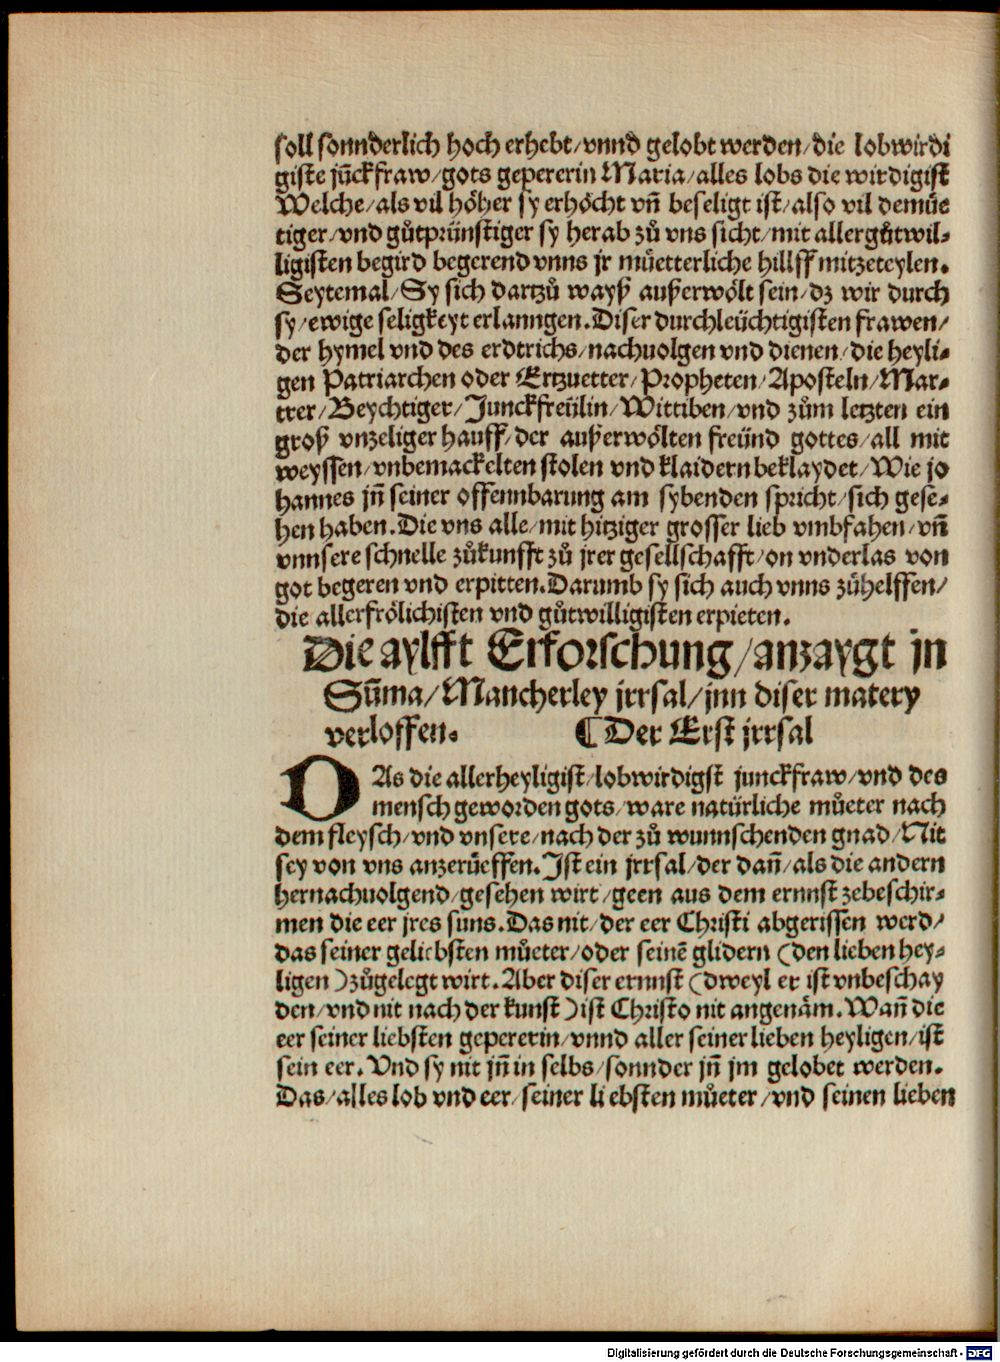 soll sonnderlich hoch erhebt/vnnd gelobt werden/die lobwirdi
giste jūckfraw/gots gepererin Maria/alles lobs die wirdigist
Welche/als vil höher sy erhöcht vñ beseligt ist/also vil demüe
tiger/vnd gůtprünstiger sy herab zů vns sicht/mit allergůtwil⸗
ligisten begird begerend vnns jr müetterliche hillff mitzeteylen.
Seytemal/Sy sich dartzů wayß außerwölt sein/dz wir durch
sy/ewige seligkeyt erlanngen.Diser durchleüchtigisten frawen/
der hymel vnd des erdtrichs/nachuolgen vnd dienen/die heyli⸗
gen Patriarchen oder Ertzuetter/Propheten/Aposteln/Mar⸗
trer/Beychtiger/Junckfreülin/Wittiben/vnd zům letzten ein
groß vnzeliger hauff/der außerwölten freünd gottes/all mit
weyssen/vnbemackelten stolen vnd klaidern beklaydet/Wie jo
hannes jñ seiner offennbarung am sybenden spricht/sich gese⸗
hen haben.Die vns alle/mit hitziger grosser lieb vmbfahen/vñ
vnnsere schnelle zůkunfft zů jrer gesellschafft/on vnderlas von
got begeren vnd erpitten.Darumb sy sich auch vnns zůhelffen/
die allerfrölichisten vnd gůtwilligisten erpieten.
Die aylfft Erforschung/anzaygt jn
Sūma/Mancherley jrrsal/jnn diser matery
verloffen. ¶ Der Erst jrrsal
DAs die allerheyligist/lobwirdigst junckfraw/vnd des
mensch geworden gots/ware natürliche můeter nach
dem fleysch/vnd vnsere/nach der zů wunnschenden gnad/Nit
sey von vns anzerüeffen.Ist ein jrrsal/der dañ/als die andern
hernachuolgend/gesehen wirt/geen aus dem ernnst zebeschir⸗
men die eer jres suns.Das nit/der eer Christi abgerissen werd/
das seiner geliebsten můeter/oder seinē glidern (den lieben hey⸗
ligen) zůgelegt wirt.Aber diser ernnst (dweyl er ist vnbeschay
den/vnd nit nach der kunst) ist Christo nit angenäm.Wañ die
eer seiner liebsten gepererin/vnnd aller seiner lieben heyligen/ist
sein eer.Vnd sy nit jñ in selbs/sonnder jñ jm gelobet werden.
Das/alles lob vnd eer/seiner liebsten můeter/vnd seinen lieben
Digitalisierung gefördert durch die Deutsche Forschungsgemeinschaft - DFG